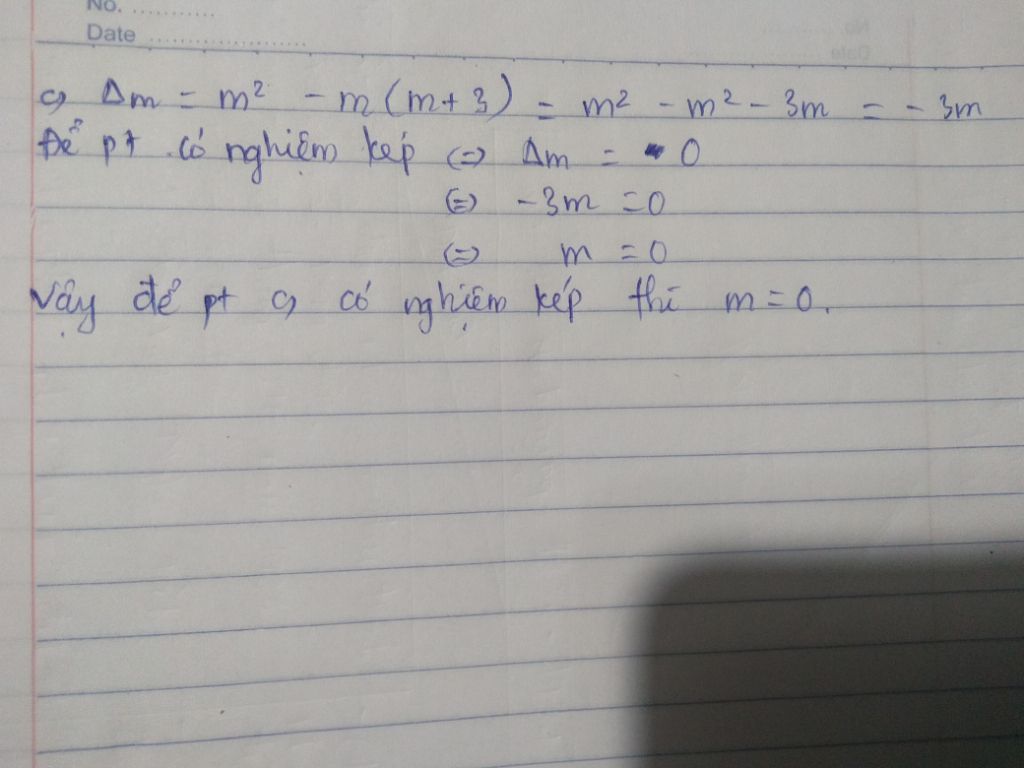 No. ............
Date ......................
c, Δm = m² - m(m+3) = m² - m² - 3m = - 3m
Để pt có nghiệm kép (=) Δm = 0
(=) -3m = 0
(=) m = 0
Vậy để pt c, có nghiệm kép thì m = 0.